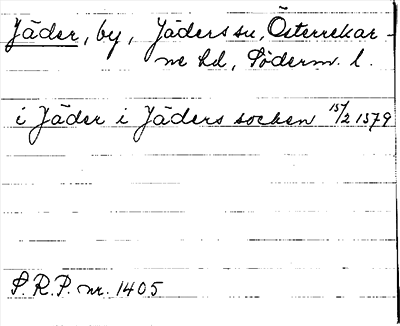 Jäder, by, Jäders sn, Österrekar-
ne hd, Söderm. l.
i Jäder i Jäders socken 15/2 1379
S.R.P. nr. 1405